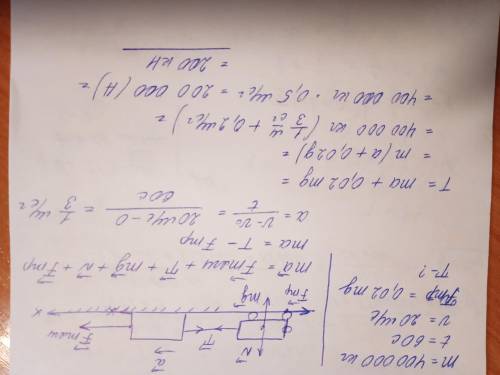 m = 400 000 кг
t = 60с
v = 20 м/с
Fтр = 0,02 mg
T - ?
N
a
T
Fтяги
mg
Fтр
x
ma = Fтяги + T + mg + N + Fтр
ma = T - Fтр
a = v - v₀ / t = 20 м/с - 0 / 60с = 1/3 м/с²
T = ma + 0,02 mg =
= m (a + 0,02g) =
= 400 000 кг (1/3 м/с² + 0,2 м/с²) =
= 400 000 кг · 0,5 м/с² = 200 000 (Н) =
= 200 кН